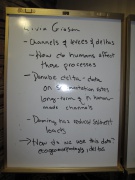 Liviu Giosan
- Channels of rivers & deltas
- How do humans affect
those processes
- Danube delta - data
on sedimentation rates
long-term & in human-
made channels
- Damming has reduced sediment
loads
→ How do we use this data?
deltas